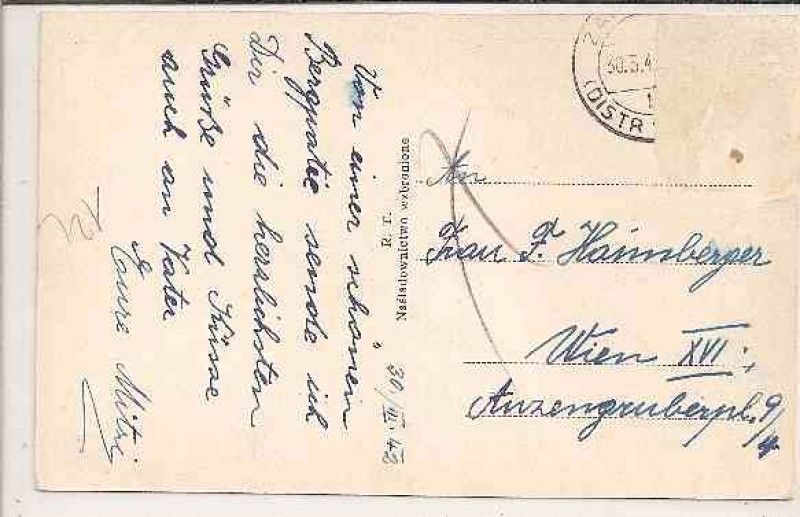 Von einer schönen
Bergpartie sende ich
Dir die herzlichsten
Grüße und Küsse
auch an Vater
Eure Mitzi
30/III 42
R. T.
Naśladownictwo wzbronione
30.3.4
(DISTR
An
Frau F. Haimberger
Wien XVI.,
Anzengruberpl. 9/4